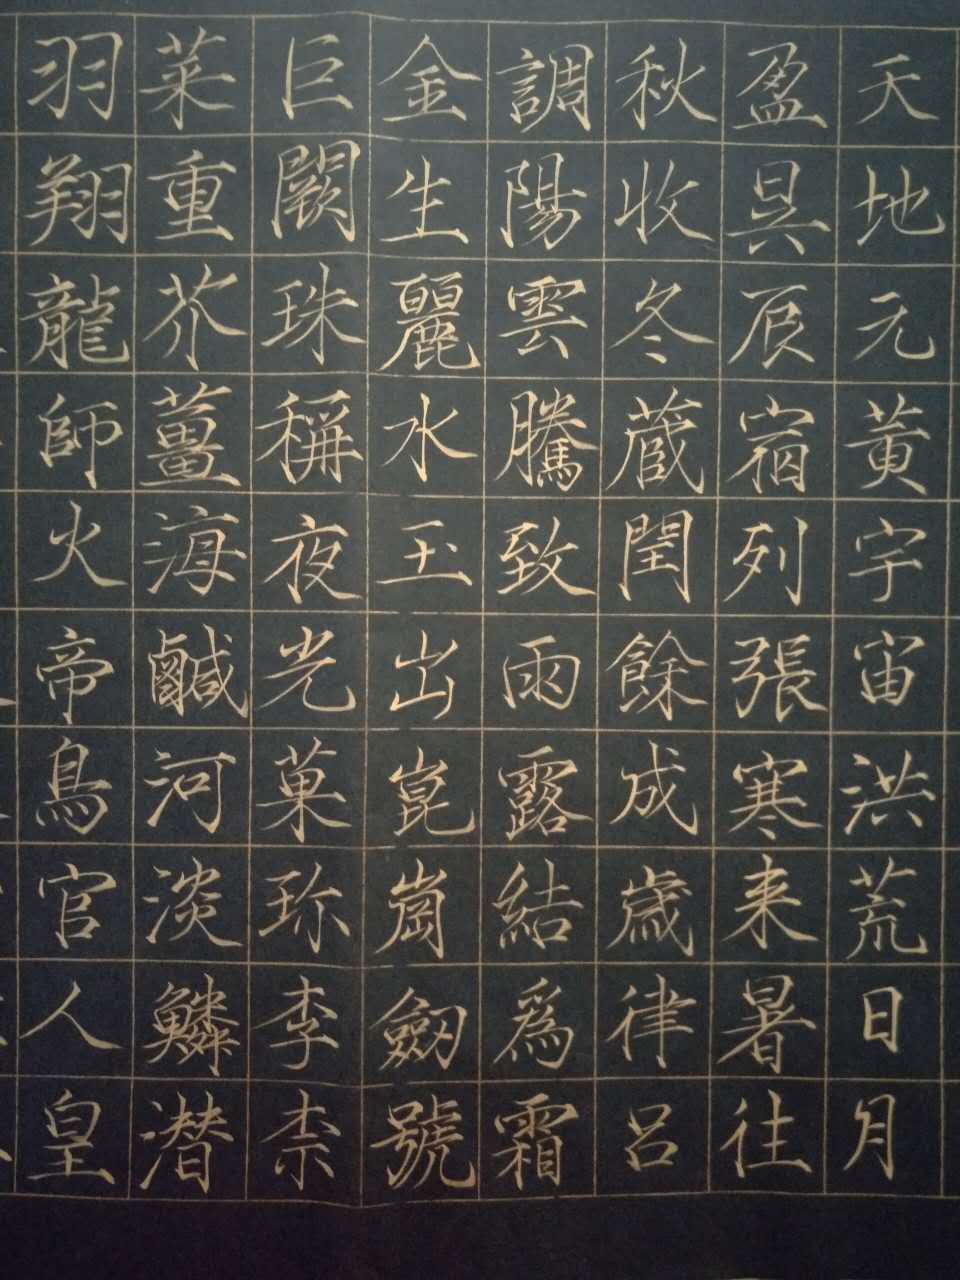 天地元黄宇宙洪荒日月
盈昃辰宿列張寒来暑往
秋收冬蔵閏餘成歲律呂
調陽雲騰致雨露結為霜
金生麗水玉出崑崗劔號
巨闕珠稱夜光菓珍李柰
菜重芥薑海鹹河淡鱗潛
羽翔龍師火帝鳥官人皇